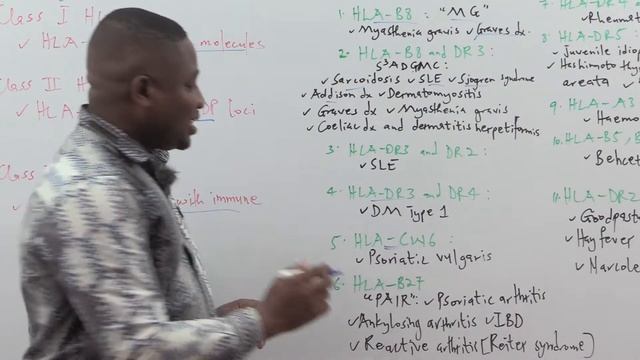 Class I H
✓ HLA- molecules
Class II H
✓ HLA DP loci
Class
with immune
1. HLA-B8 : "MG"
✓ Myasthenia gravis ✓ Graves dx.
2. HLA-B8 and DR3 :
S³ADGMC:
✓ Sarcoidosis ✓ SLE ✓ Sjogren syndrome
✓ Addison dx ✓ Dermatomyositis
✓ Graves dx ✓ Myasthenia gravis
✓ Coeliac dx and dermatitis herpetiformis
3. HLA-DR3 and DR2 :
✓ SLE
4. HLA-DR3 and DR4 :
✓ DM Type 1
5. HLA-CW6 :
✓ Psoriatic vulgaris
6. HLA-B27
"PAIR": ✓ Psoriatic arthritis
✓ Ankylosing arthritis ✓ IBD
✓ Reactive arthritis [Reiter syndrome]
7. HLA-DR4
✓ Rheumat
8. HLA-DR5 :
✓ Juvenile idiop
✓ Hashimoto thy
areata ✓
9. HLA-A3
✓ Haemo
10. HLA-B5,
Behcet
11. HLA-DR2
✓ Goodpastu
✓ Hay fever
✓ Narcole